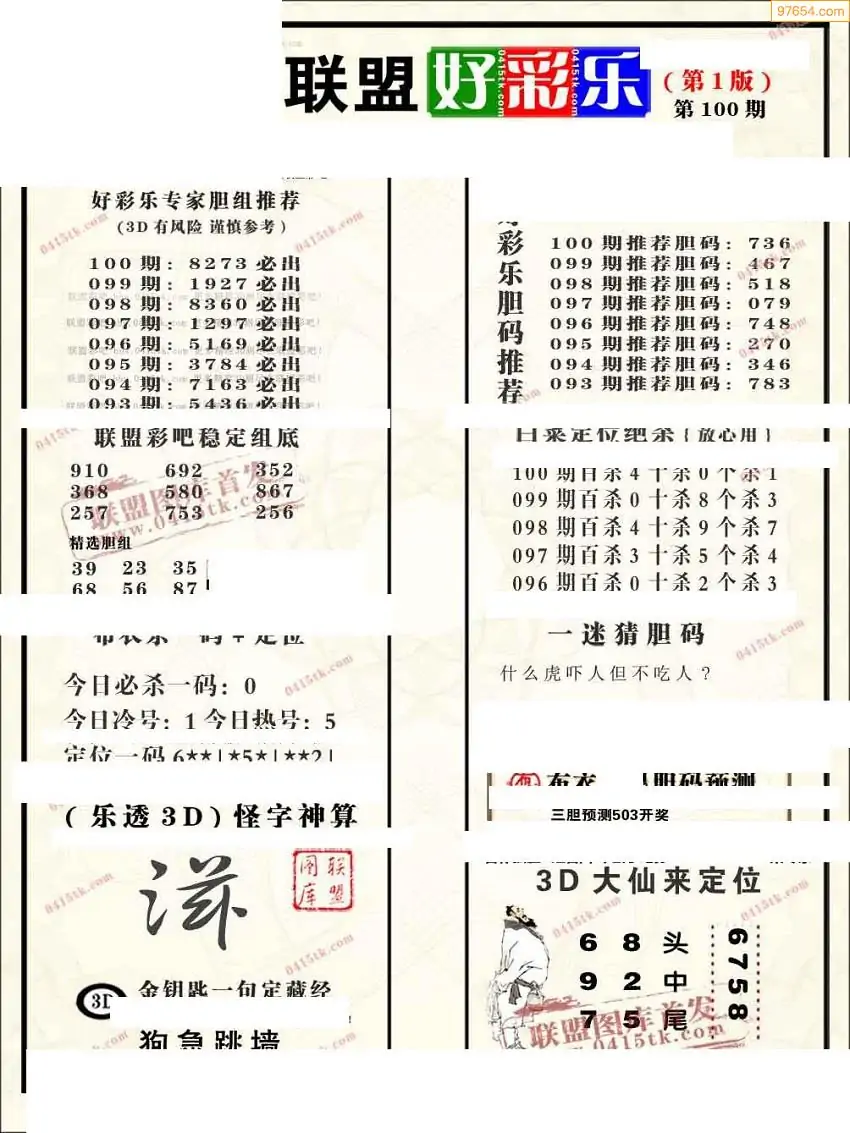 97654.com
联盟好彩乐
(第1版)
第100期
好彩乐专家胆组推荐
(3D有风险 谨慎参考)
100期: 8273必出
099期: 1927必出
098期: 8360必出
097期: 1297必出
096期: 5169必出
095期: 3784必出
094期: 7163必出
093期: 5436必出
联盟彩吧稳定组底
910 692 352
368 580 867
257 753 256
精选胆组
39 23 35
68 56 87
今日必杀一码: 0
今日冷号: 1 今日热号: 5
定位一码 6**|*5*|**2|
(乐透3D)怪字神算
滋
联盟图库
3D
金钥匙一句定藏经
狗急跳墙
彩乐胆码推荐
100期推荐胆码: 736
099期推荐胆码: 467
098期推荐胆码: 518
097期推荐胆码: 079
096期推荐胆码: 748
095期推荐胆码: 270
094期推荐胆码: 346
093期推荐胆码: 783
百杀定位绝杀(放心用)
100期百杀4十杀0个杀1
099期百杀0十杀8个杀3
098期百杀4十杀9个杀7
097期百杀3十杀5个杀4
096期百杀0十杀2个杀3
一迷猜胆码
什么虎吓人但不吃人?
三胆预测503开奖
3D大仙来定位
6 8 头
9 2 中
7 5 尾
6758
联盟图库首发
www.0415tk.com
0415tk.com